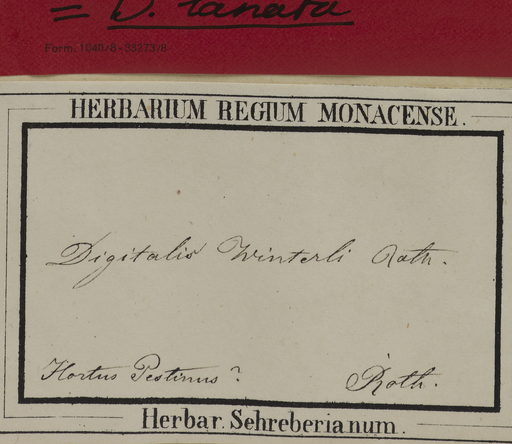 = D. lanata
Form. 1040/8-38273/8
HERBARIUM REGIUM MONACENSE.
Digitalis Winterli Roth.
Hortus Pestinus?
Roth.
Herbar. Schreberianum.